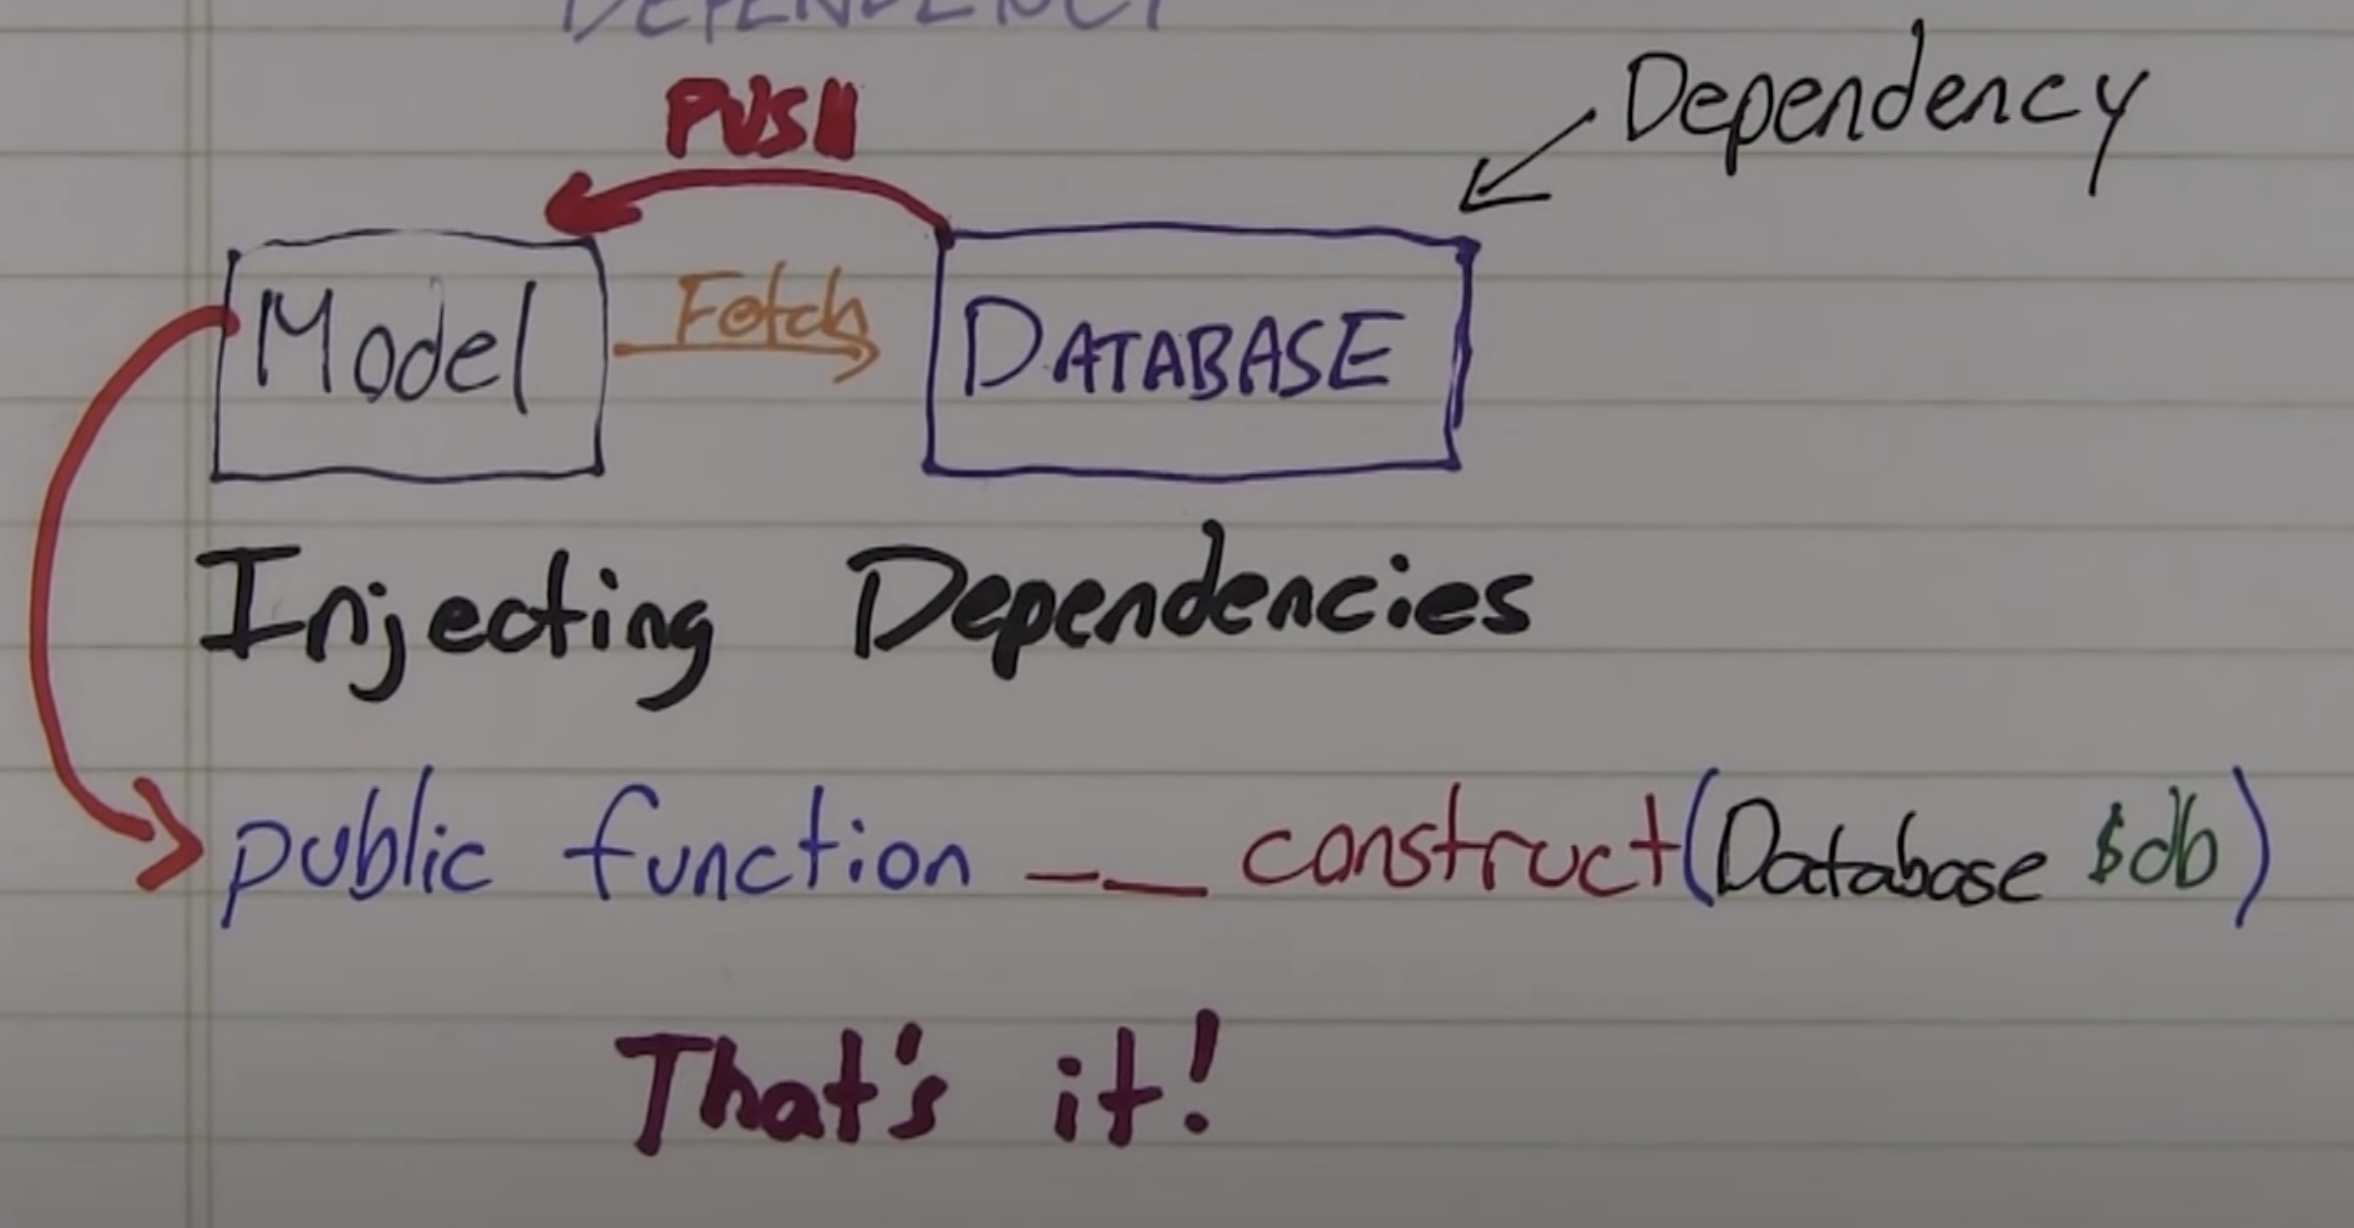 DEPENDENCY
PUSH
Dependency
Model
Fetch
DATABASE
Injecting Dependencies
public function __construct(Database $db)
That's it!